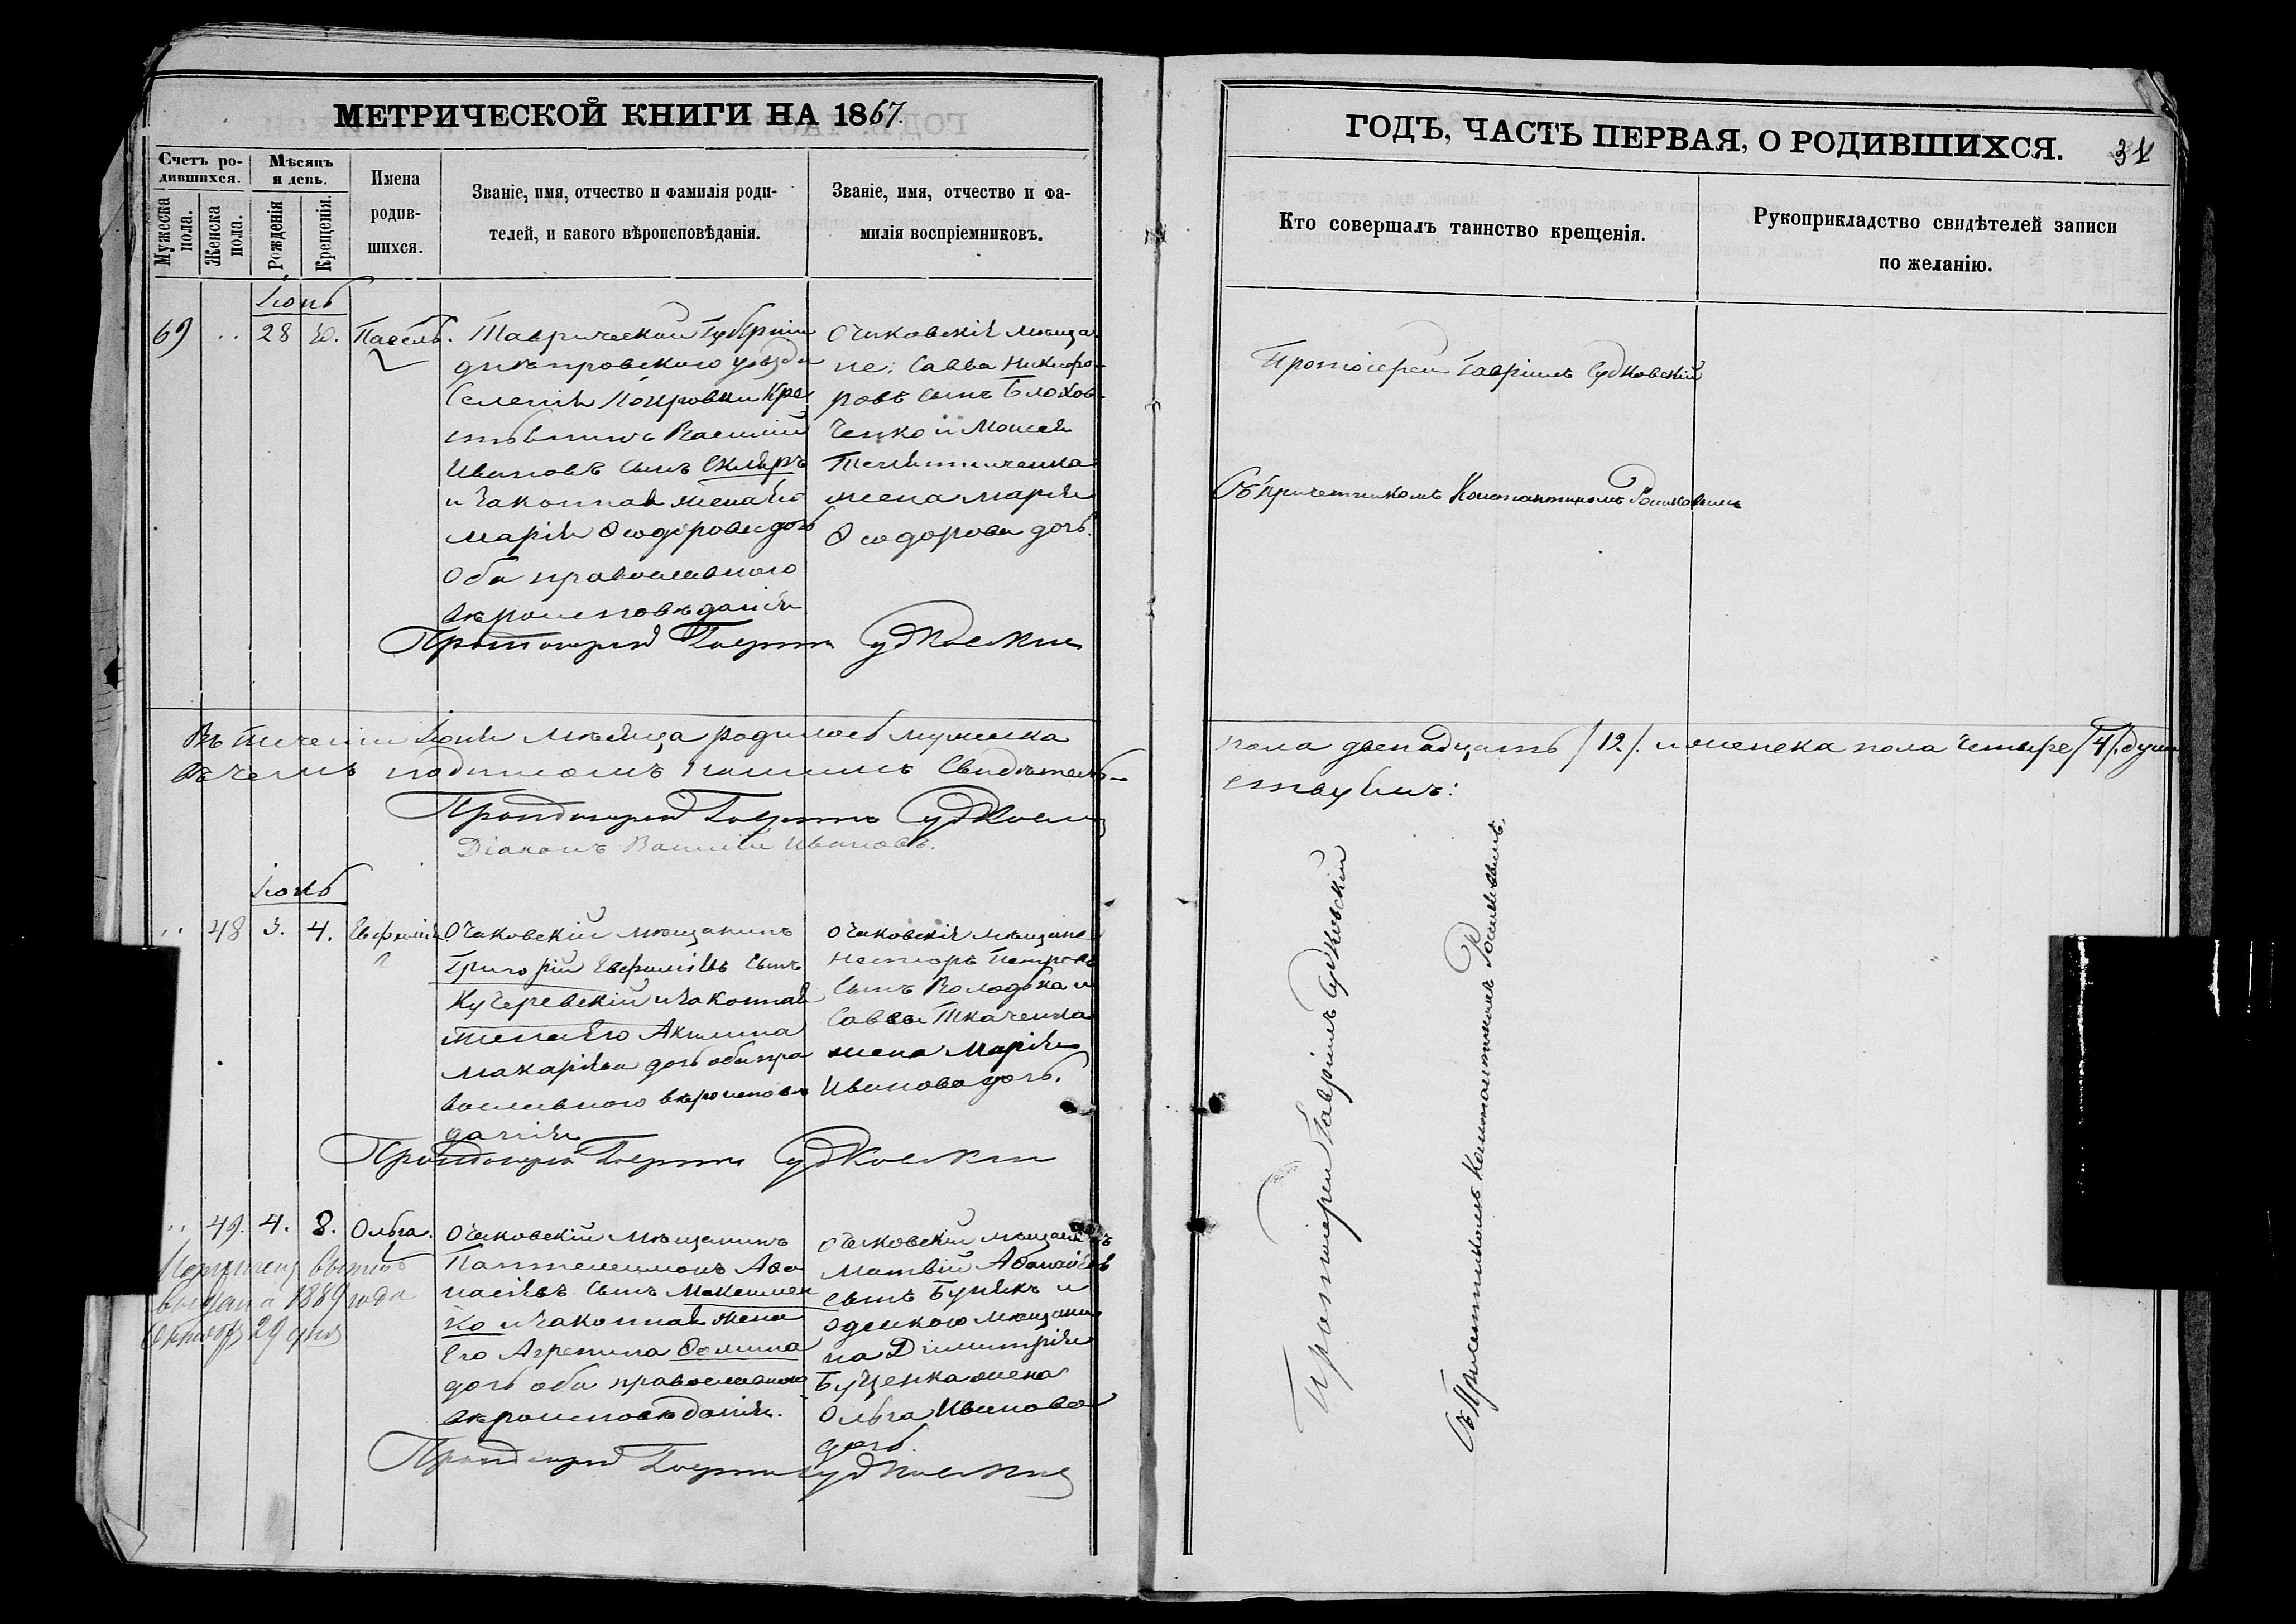 МЕТРИЧЕСКОЙ КНИГИ НА 1867.
Счетъ родившихся.
Мѣсяцъ и день.
Мужеска пола.
Женска пола.
Рожденія
Крещенія.
Имена родившихся.
Званіе, имя, отчество и фамилія родителей, и какого вѣроисповѣданія.
Званіе, имя, отчество и фамилія воспріемниковъ.
Іюнь
69 .. 28 30. Павелъ.
Таврической Губерніи
днѣпровскаго уѣзда
Селенія Покровки Кре
стьянинъ Василій
Ивановъ сынъ Скляръ
и законная жена его
Марія Ѳеодорова дочь
Оба православнаго
вѣроисповѣданія
Очаковскія мѣща
не: Савва Никифо-
ровъ сынъ Блохов-
ченко и Моисея
жена Марія
Ѳеодорова дочь.
Протоіерей Гавріилъ Судковскій
Въ теченіи Іюня мѣсяца родилось мужеска
въ чемъ подписомъ нашимъ свидѣтель-
Протоіерей Гавріилъ Судковскій
Діаконъ Василій Ивановъ.
Іюль
.. 48 3. 4. Евфимія
Очаковскій мѣщанинъ
Григорій Евфиміевъ сынъ
Кучеревскій и законная
жена его Акилина
Макаріева дочь оба пра
вославнаго вѣроисповѣ
данія
Очаковскія мѣщане
Несторъ Петровъ
сынъ Володька и
Саввы Ткаченка
жена Марія
Иванова дочь.
Протоіерей Гавріилъ Судковскій
.. 49. 4. 8. Ольга.
Очаковскій мѣщанинъ
Пантелеимонъ Аѳа
насіевъ сынъ Максимен
ко и законная жена
его Агрепина Ѳомина
дочь оба православнаго
вѣроисповѣданія.
Очаковскій мѣщанинъ
Матвій Аѳанасіевъ
сынъ Бунякъ и
одескаго мѣщани
на Димитрія
Буценка жена
Ольга Иванова
дочь.
выдана 1889 года
29 дня
Протоіерей Гавріилъ Судковскій
ГОДЪ, ЧАСТЬ ПЕРВАЯ, О РОДИВШИХСЯ.
31
Кто совершалъ таинство крещенія.
Рукоприкладство свидѣтелей записи по желанію.
Протоіерей Гавріилъ Судковскій
Съ причетникомъ Константиномъ
пола двенадцать /12/. и женска пола четыре /4/. душ
ствуемъ:
Протоіерей Гавріилъ Судковскій
Съ Причетникомъ Константиномъ